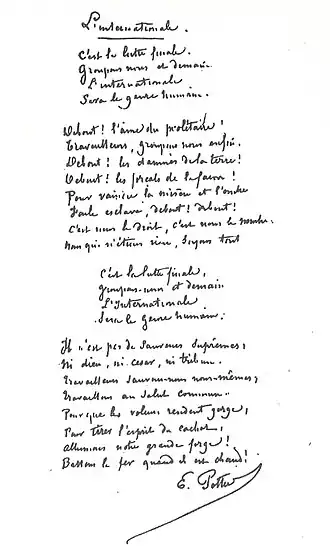 L'internationale.
C'est la lutte finale.
Groupons nous et demain
L'internationale
Sera le genre humain.
Debout! l'âme du prolétaire!
Travailleurs, groupons nous enfin.
Debout! les damnés de la terre!
Debout! les forçats de la faim!
Pour vaincre la misère et l'ombre
Foule esclave, debout! debout!
C'est nous le droit, c'est nous le nombre.
Nous qui n'étions rien, soyons tout
C'est la lutte finale,
groupons-nous et demain
L'Internationale
Sera le genre humain.
Il n'est pas de sauveurs suprêmes;
Ni dieu, ni césar, ni tribun.
Travailleurs sauvons-nous nous-mêmes;
Travaillons au salut commun.
Pour que les voleurs rendent gorge,
Pour tirer l'esprit du cachot,
Allumons notre grande forge!
Battons le fer quand il est chaud!
E. Pottier